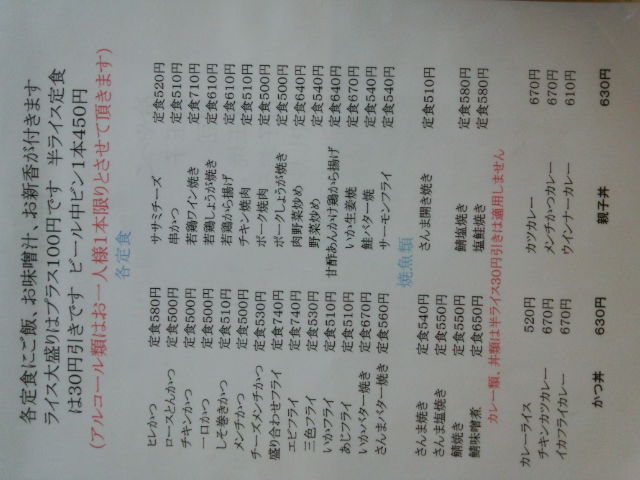 各定食にご飯、お味噌汁、お新香が付きます
ライス大盛りはプラス100円です 半ライス定食
は30円引きです ビール中ビン1本450円
(アルコール類はお一人様1本限りとさせて頂きます)
各定食
ヒレかつ 定食580円 ササミチーズ 定食520円
ロースとんかつ 定食500円 串かつ 定食510円
チキンかつ 定食500円 若鶏ワイン焼き 定食710円
一口かつ 定食500円 若鶏しょうが焼き 定食610円
しそ巻きかつ 定食510円 若鶏から揚げ 定食610円
メンチかつ 定食500円 チキン焼肉 定食510円
チーズメンチかつ 定食530円 ポーク焼肉 定食500円
盛り合わせフライ 定食740円 ポークしょうが焼き 定食500円
エビフライ 定食740円 肉野菜炒め 定食640円
三色フライ 定食530円 野菜炒め 定食540円
いかフライ 定食510円 甘酢あんかけ鶏から揚げ 定食640円
あじフライ 定食510円 いか生姜焼 定食670円
いかバター焼き 定食670円 鮭バター焼 定食540円
さんまバター焼き 定食560円 サーモンフライ 定食540円
焼魚類
さんま焼き 定食540円 さんま開き焼き 定食510円
さんま塩焼き 定食550円
鯖焼き 定食550円 鯖塩焼き 定食580円
鯖味噌煮 定食650円 塩鮭焼き 定食580円
カレー類、丼類は半ライス30円引きは適用しません
カレーライス 520円 カツカレー 670円
チキンカツカレー 670円 メンチかつカレー 670円
イカフライカレー 670円 ウインナーカレー 610円
かつ丼 630円 親子丼 630円